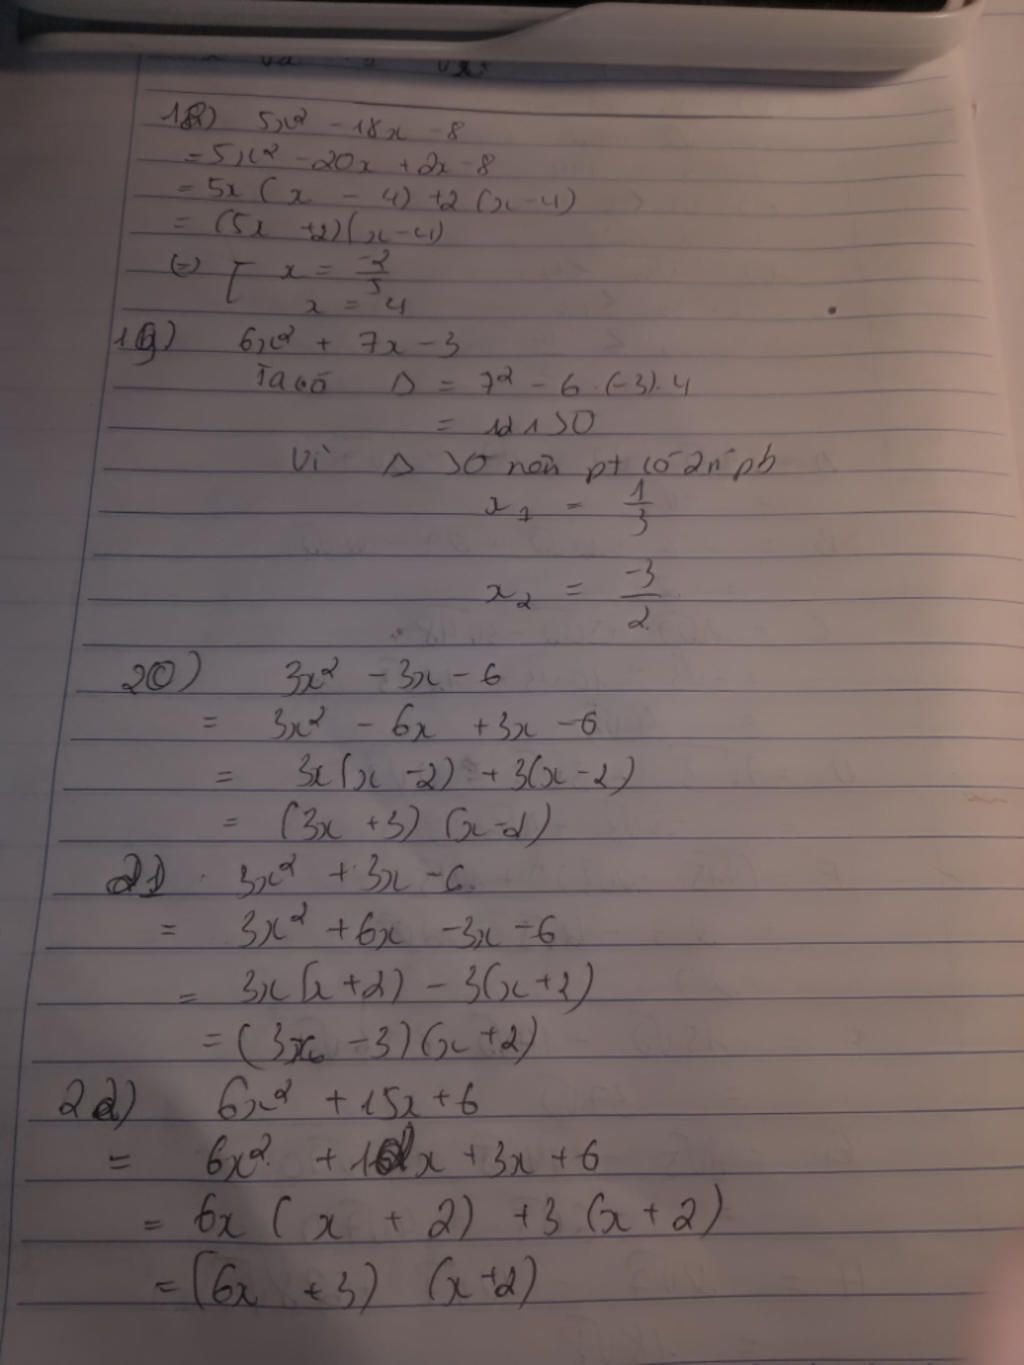 18) 5x² - 18x - 8
= 5x² - 20x + 2x - 8
= 5x ( x - 4) + 2 (x - 4)
= (5x + 2)(x - 4)
(=) [ x = -2/5
x = 4
19) 6x² + 7x - 3
Ta có Δ = 7² - 6 . (-3) . 4
= 121 > 0
Vì Δ > 0 nên pt có 2n⁰ pb
x₁ = 1/3
x₂ = -3/2
20) 3x² - 3x - 6
= 3x² - 6x + 3x - 6
= 3x(x - 2) + 3(x - 2)
= (3x + 3) (x - 2)
21) 3x² + 3x - 6
= 3x² + 6x - 3x - 6
= 3x(x + 2) - 3(x + 2)
= (3x - 3)(x + 2)
22) 6x² + 15x + 6
= 6x² + 12x + 3x + 6
= 6x ( x + 2) + 3 (x + 2)
= (6x + 3) (x + 2)